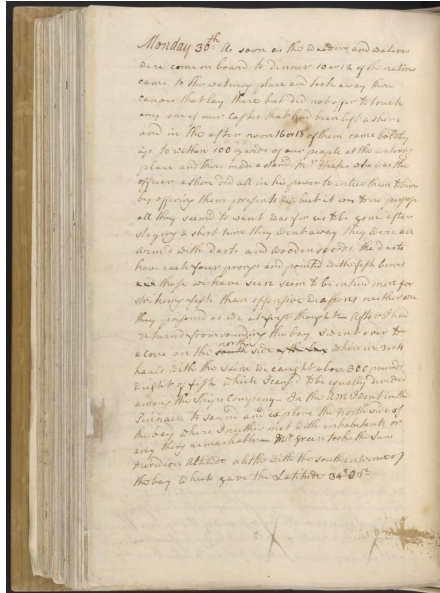 Monday 30th. As soon as the Wooders and Waterers
were come on board to dinner 10 or 12 of the natives
came to the watering place and took away their
canoes that lay there but did not offer to touch
any one of our Casks that had been left ashore
and in the after noon 16 or 18 of them came boldly
up to within 100 yards of our people at the watering
place and there made a stand Mr Hicks who was the
officer ashore did all in his power to intice them to him
by offering them presents &c but it was to no purpose
all they seem'd to want was for us to be gone after
staying a short time they went away they were all
arm'd with darts and wooden swords the darts
have each four prongs and pointed with fish bones
those we have seen seem to be intend more for
striking fish than offensive weapons neither are
they poisoned as we at first thought After I had
returned from sounding the bay I went over to
a cove on the north side where in 3 or 4
hauls with the Saine we caught about 300 pounds
weight of fish which I caused to be equally divided
among the Ships Company. In the AM I went in the
Pinnace to sound and explore the North side of
the bay where I neither met with inhabitants or
any thing remarkable Mr Green took the Suns
meridion Altitude a little with the south entrance of
the bay which gave the Latitude 34° 0' S